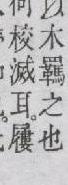 以木羈之也
何校滅耳。屨